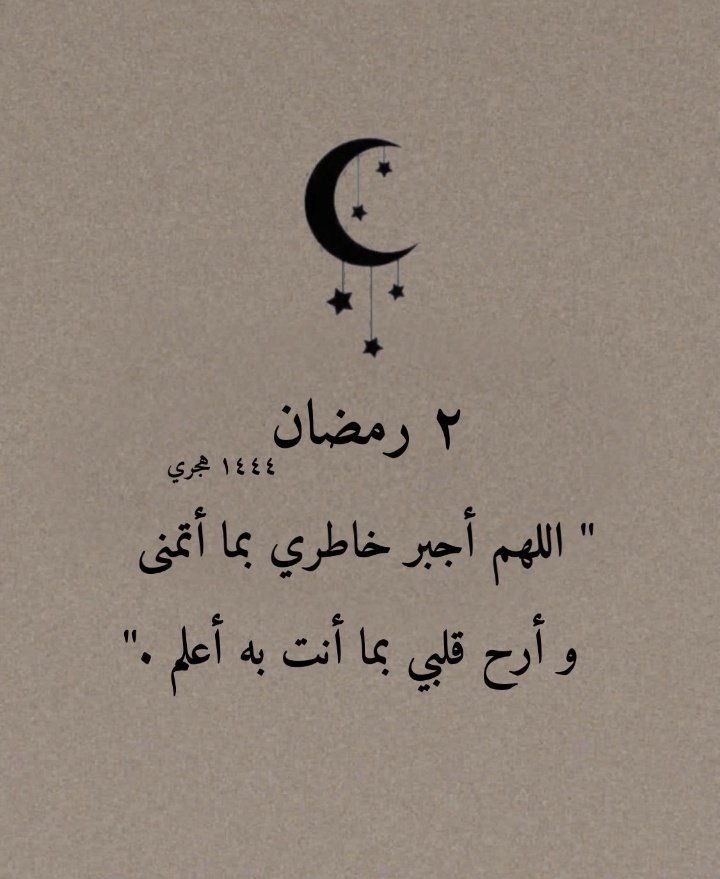 ٢ رمضان
١٤٤٤ هجري
" اللهم أجبر خاطري بما أتمنى
و أرح قلبي بما أنت به أعلم ."